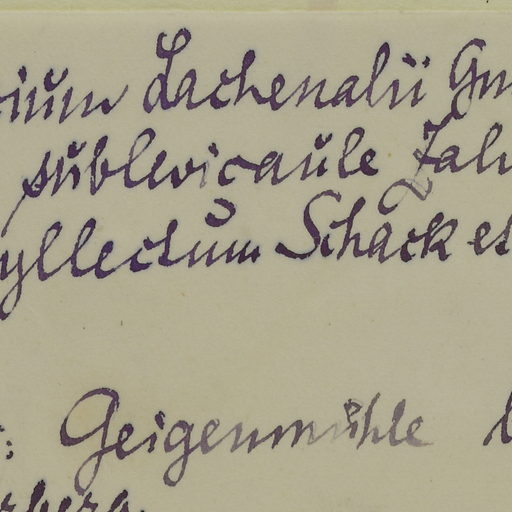 cium Lachenalii Gm
sublevicaule Zah
yllectum Schack et
: Geigenmühle b
rberg.